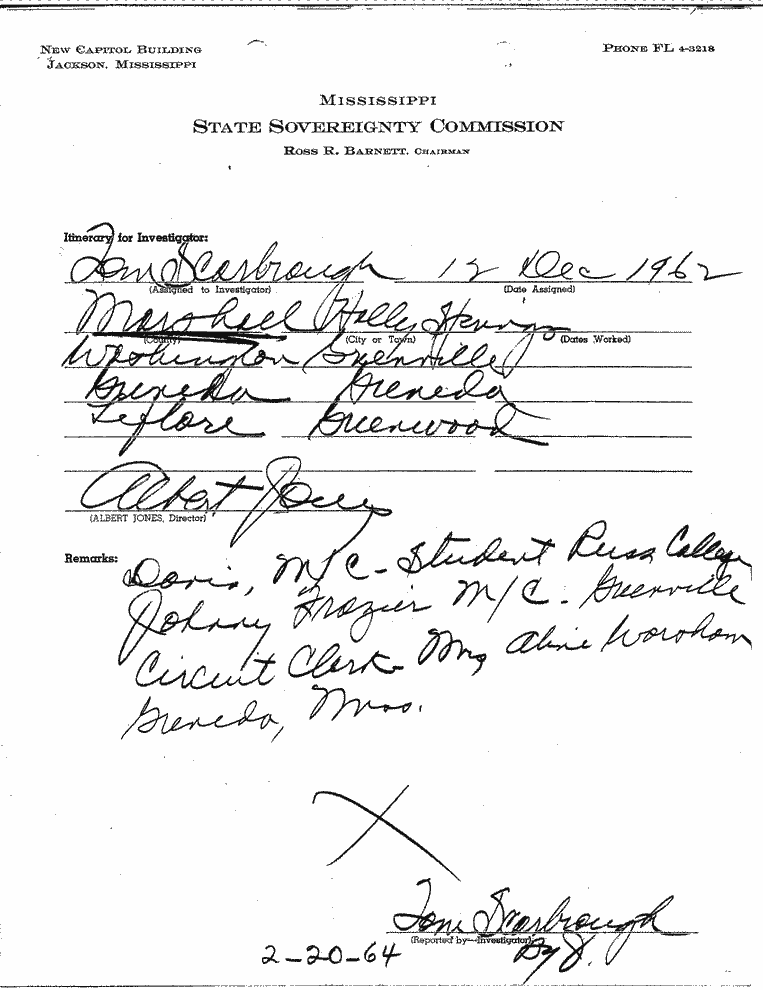 NEW CAPITOL BUILDING
JACKSON, MISSISSIPPI
PHONE FL 4-3218
MISSISSIPPI
STATE SOVEREIGNTY COMMISSION
ROSS R. BARNETT, CHAIRMAN
Itinerary for Investigator:
Tom Scarbrough 12 Dec 1962
(Assigned to Investigator) (Date Assigned)
Marshall Holly Springs
(County) (City or Town) (Dates Worked)
Washington Greenville
Greneda Greneda
Leflore Greenwood
Albert Jones
(ALBERT JONES, Director)
Remarks:
Davis, M/C - Student Russ College
Johnny Frazier M/C - Greenville
Circuit Clerk - Mrs Aline Worsham
Greneda, Miss.
X
Tom Scarbrough
(Reported by—Investigator)
By J.
2-20-64